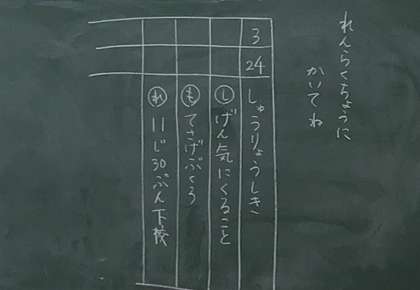 れんらくちょうに
かいてね
3
24
しゅうりょうしき
し げん気にくること
も てさげぶくろ
れ 11じ30ぷん下校